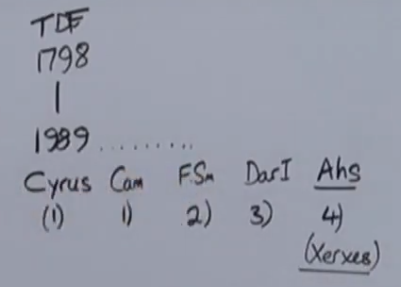 TOE
1798
|
1989.........
Cyrus Cam F.Sm DarI Ahs
(1) 1) 2) 3) 4)
(Xerxes)